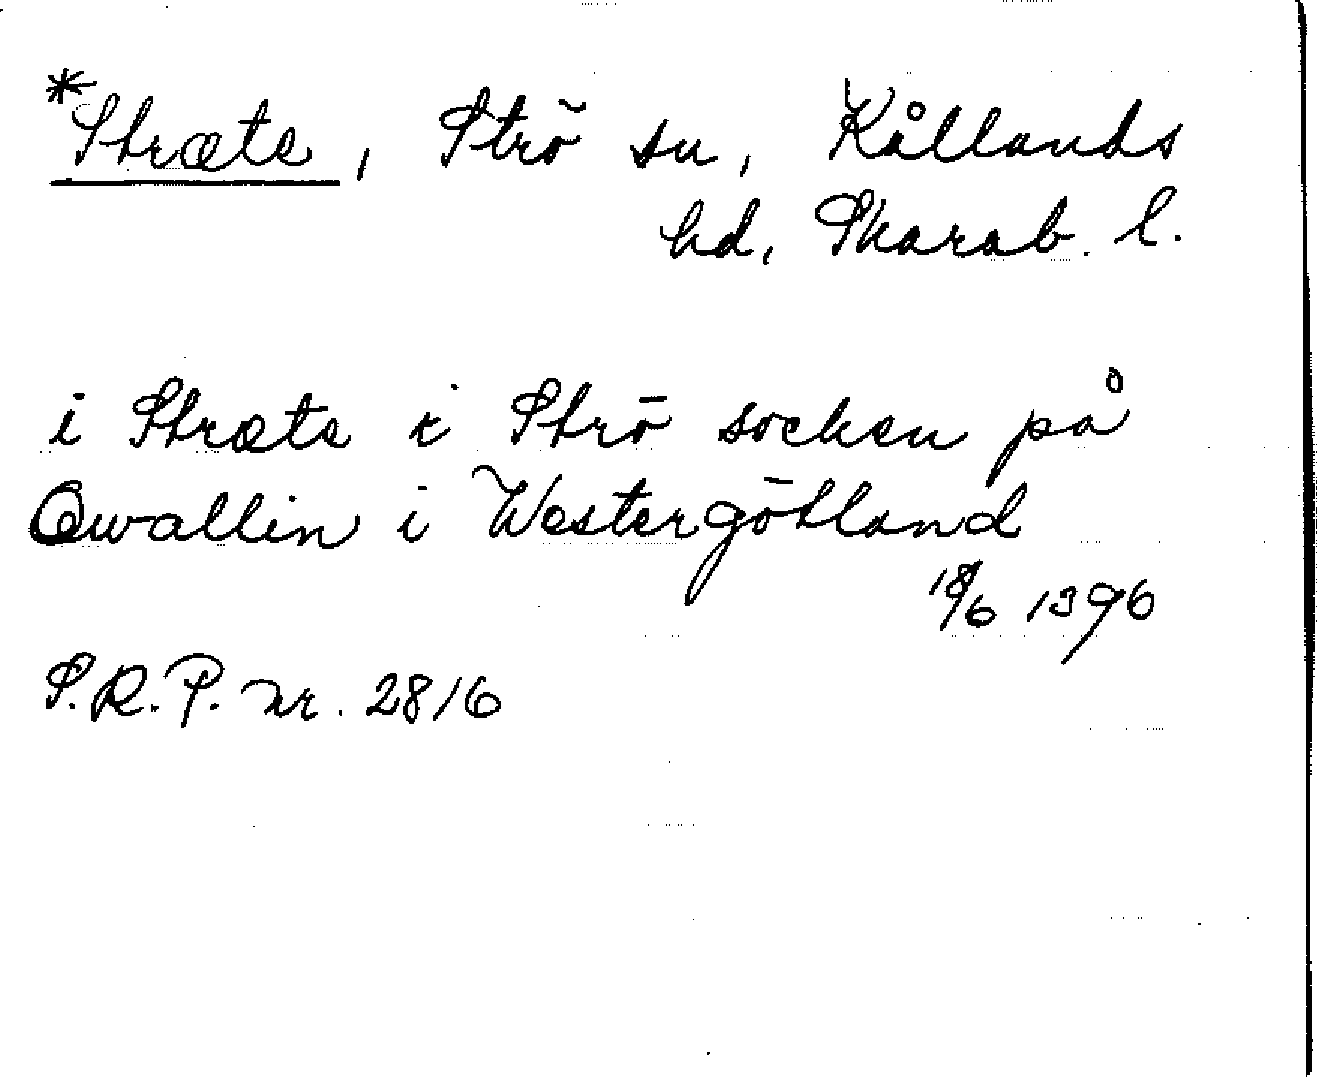 *Stræte, Strö sn, Kållands
hd, Skarab. l.
i Stræte i Strö socken på
Qwallin i Westergötland
18/6 1396
S.R.P. nr. 2816